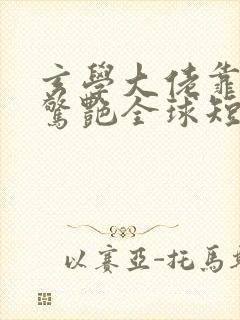 玄學大佬靠
驚艷全球短
以賽亞-托馬斯